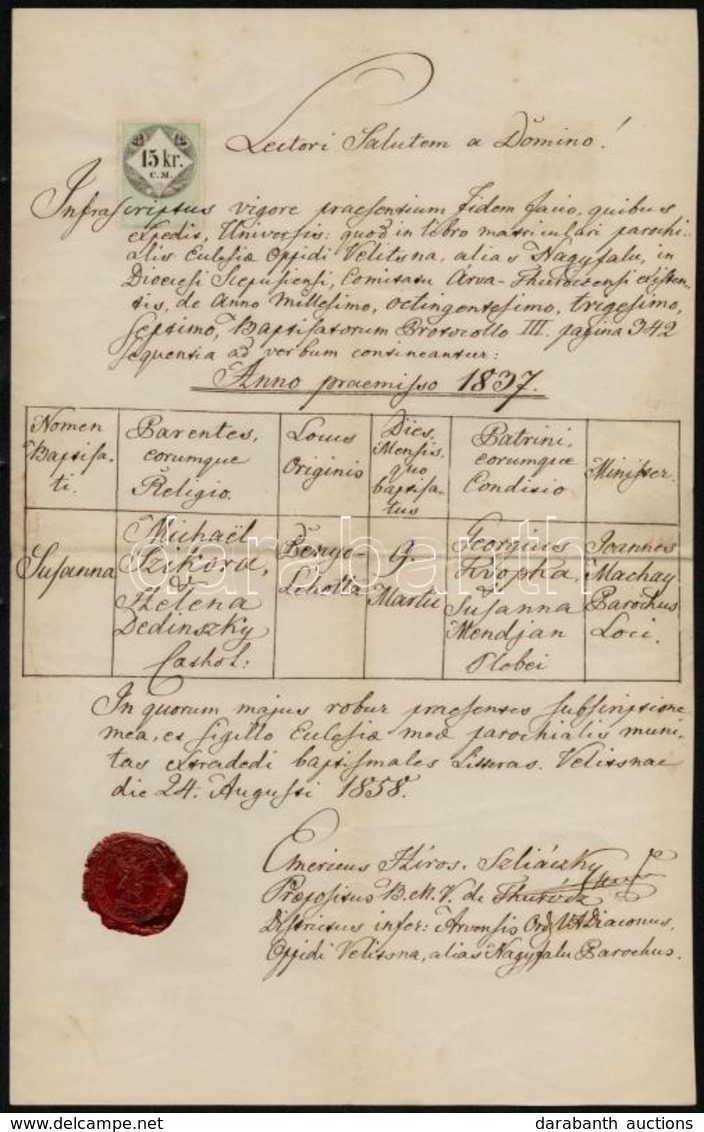 Lectori Salutem a Domino!
15 kr.
C.M.
Infrascriptus vigore praesentium fidem facio, quibus
expedit, Universis: quod in libro matriculari parochi-
alis Ecclesiæ Oppidi Velitsna, alias Nagyfalu, in
Diocesi Scepusiensi, Comitatu Arva-Thurocziensi existen-
tis, de Anno Millesimo, octingentesimo, trigesimo,
septimo, Baptisatorum Protocollo III. pagina 342
sequentia ad verbum contineantur:
Anno praemisso 1837.
Nomen
Baptisa-
ti.
Parentes,
eorumque
Religio.
Locus
Originis
Dies,
Mensis,
quo
baptisa-
tus
Patrini
eorumque
Conditio
Minister.
Susanna
Michaël
Szikora,
&
Helena
Dedinszky
Cathol:
Benyo-
Lehotta
9.
Martii
Georgius
Kropka
Susanna
Mendjan
Plebei
Joannes
Machay
Parochus
Loci.
In quorum majus robur praesentes subscriptione
mea, et sigillo Ecclesiæ meæ parochialis muni-
tas extradedi baptismales Litteras. Velitsnae
die 24. Augusti 1858.
Emericus Hiros. Szliáczky
Præpositus B.M.V. de Thurocz
Districtus infer: Arvensis Diaconus,
Oppidi Velitsna, alias Nagyfalu Parochus.
darabanth
darabanth auctions